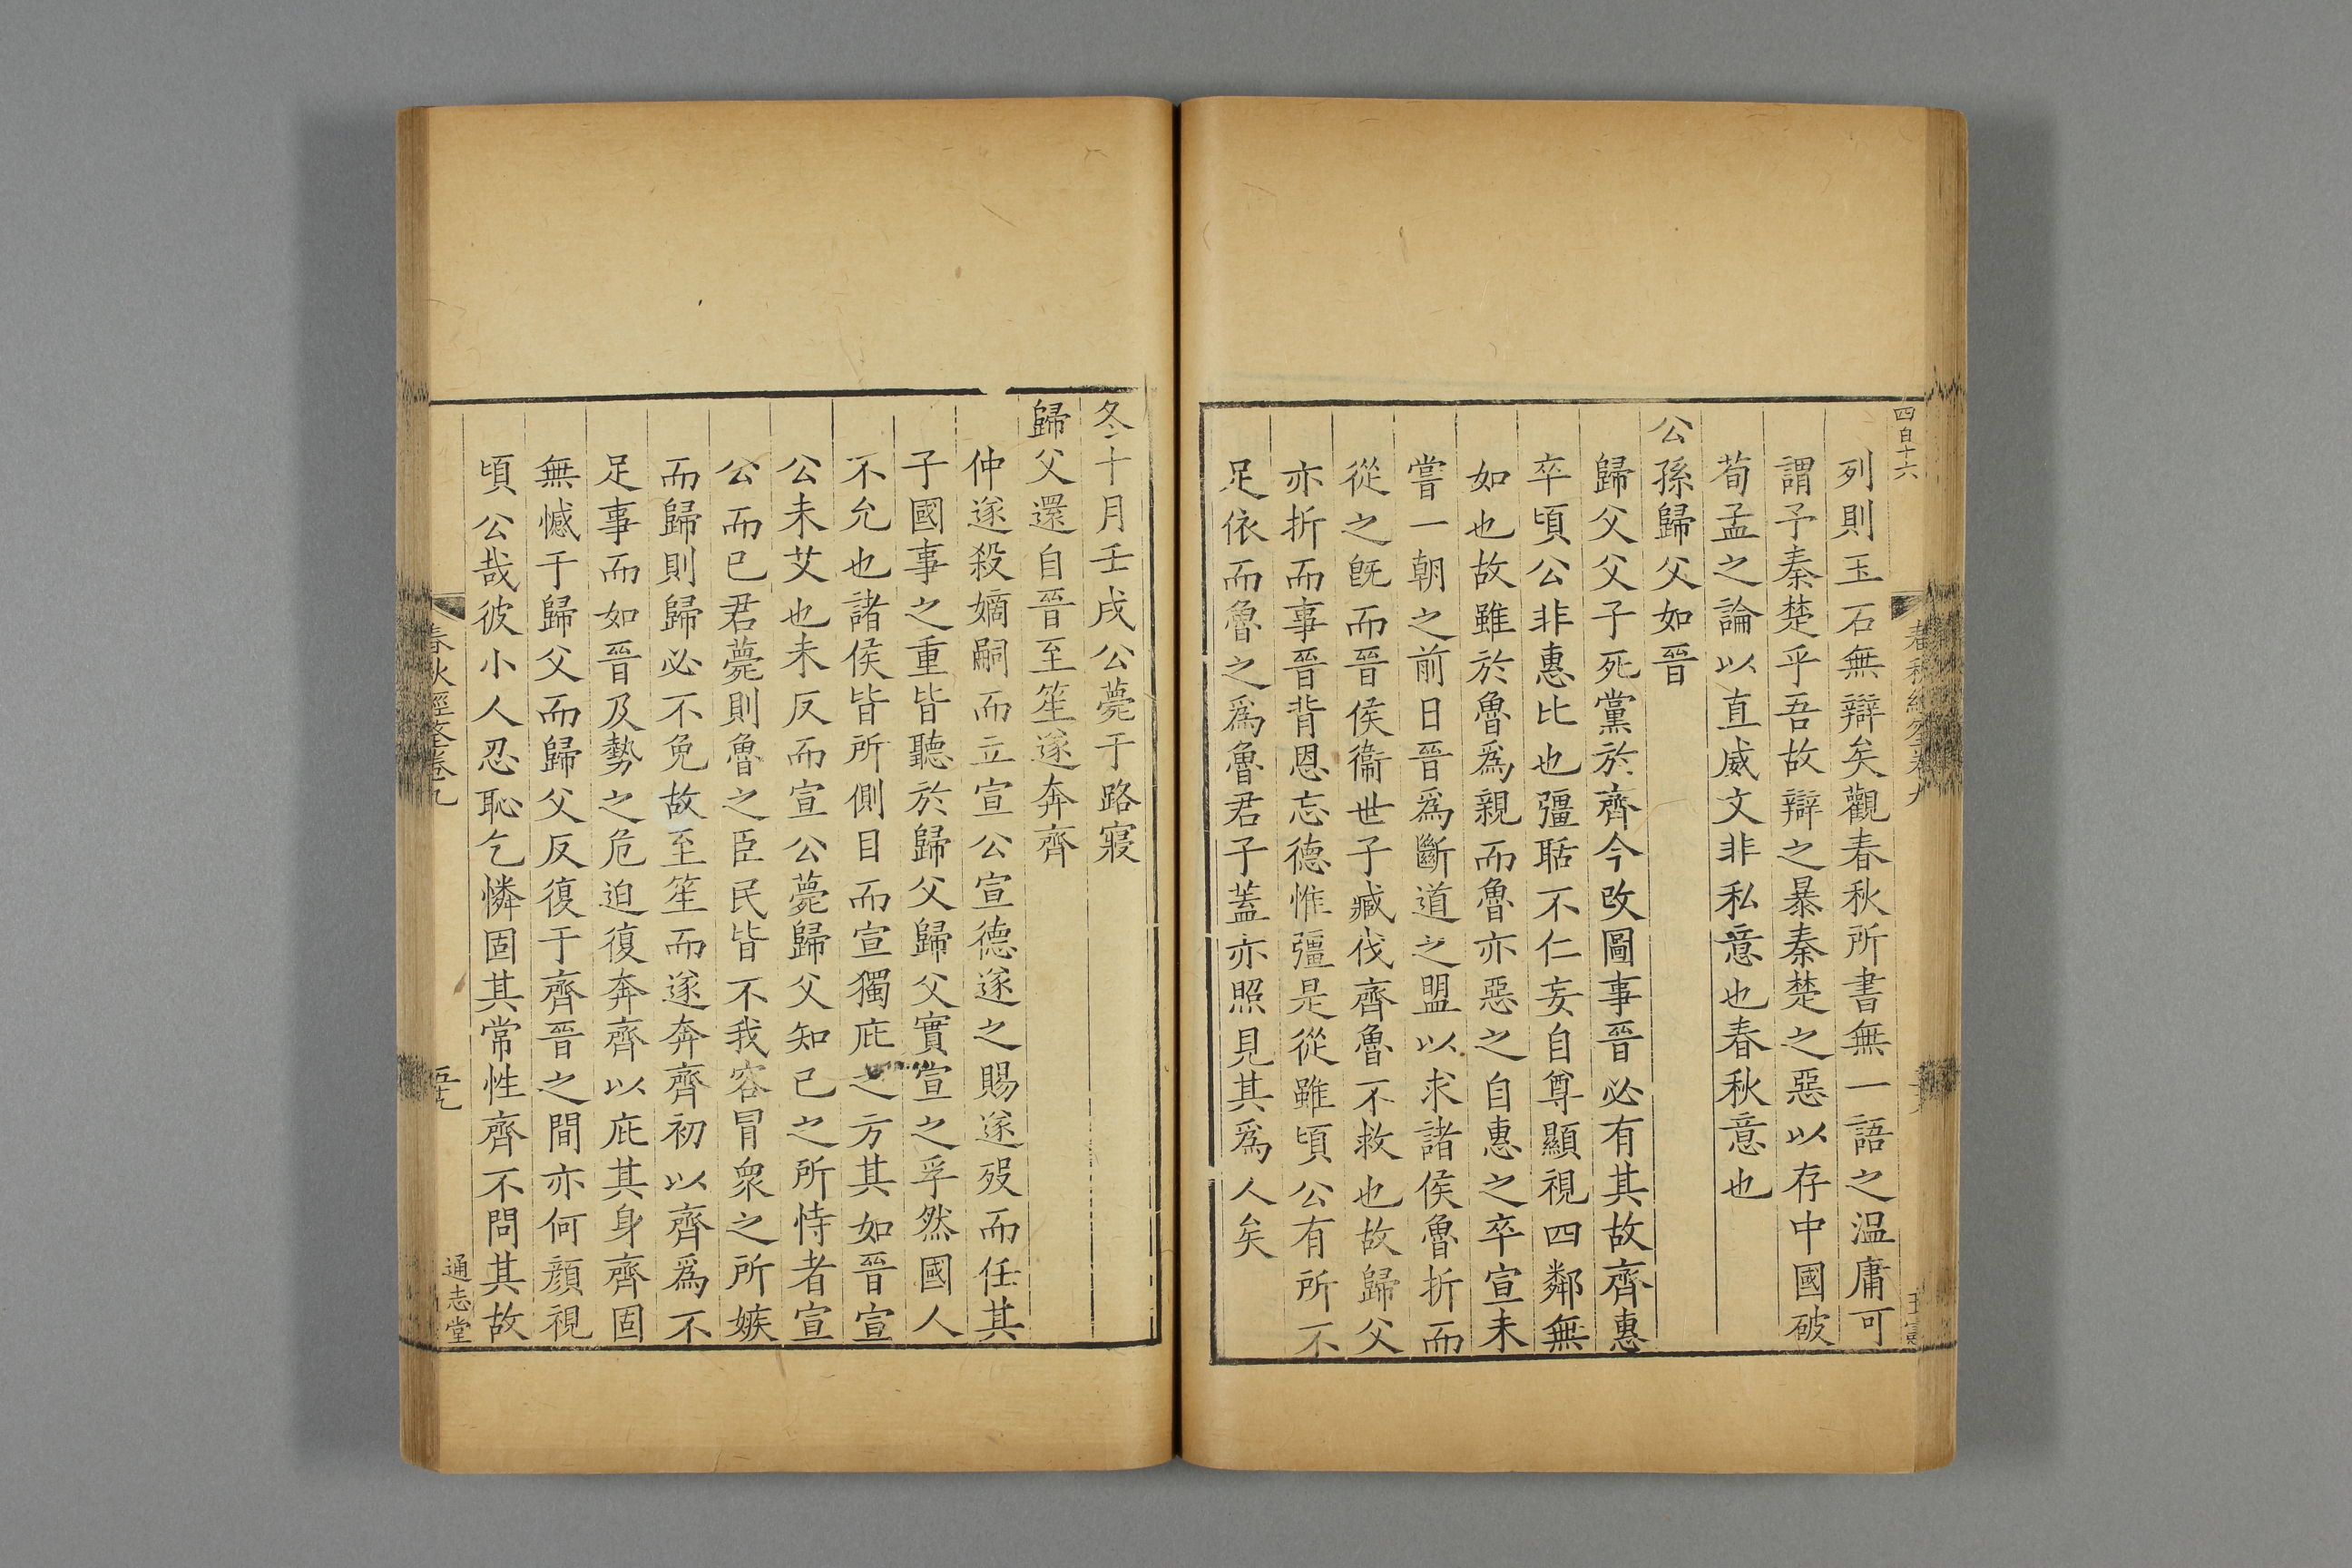 四百十六
列則玉石無辯矣觀春秋所書無一語之温庸可
謂予秦楚乎吾故辯之暴秦楚之惡以存中國破
荀孟之論以直威文非私意也春秋意也
公孫歸父如晉
歸父父子死黨於齊今改圖事晉必有其故齊惠
卒頃公非惠比也彊聒不仁妄自尊顯視四鄰無
如也故雖於魯爲親而魯亦惡之自惠之卒宣未
嘗一朝之前日晉爲斷道之盟以求諸侯魯折而
從之旣而晉侯衞世子臧伐齊魯不救也故歸父
亦折而事晉背恩忘德惟彊是從雖頃公有所不
足依而魯之爲魯君子蓋亦照見其爲人矣
冬十月壬戌公薨于路寢
歸父還自晉至笙遂奔齊
仲遂殺嫡嗣而立宣公宣德遂之賜遂歿而任其
子國事之重皆聽於歸父歸父實宣之孚然國人
不允也諸侯皆所側目而宣獨庇之方其如晉宣
公未艾也未反而宣公薨歸父知己之所恃者宣
公而已君薨則魯之臣民皆不我容冒衆之所嫉
而歸則歸必不免故至笙而遂奔齊初以齊爲不
足事而如晉及勢之危迫復奔齊以庇其身齊固
無憾于歸父而歸父反復于齊晉之間亦何顔視
頃公哉彼小人忍恥乞憐固其常性齊不問其故
春秋經筌卷九
通志堂